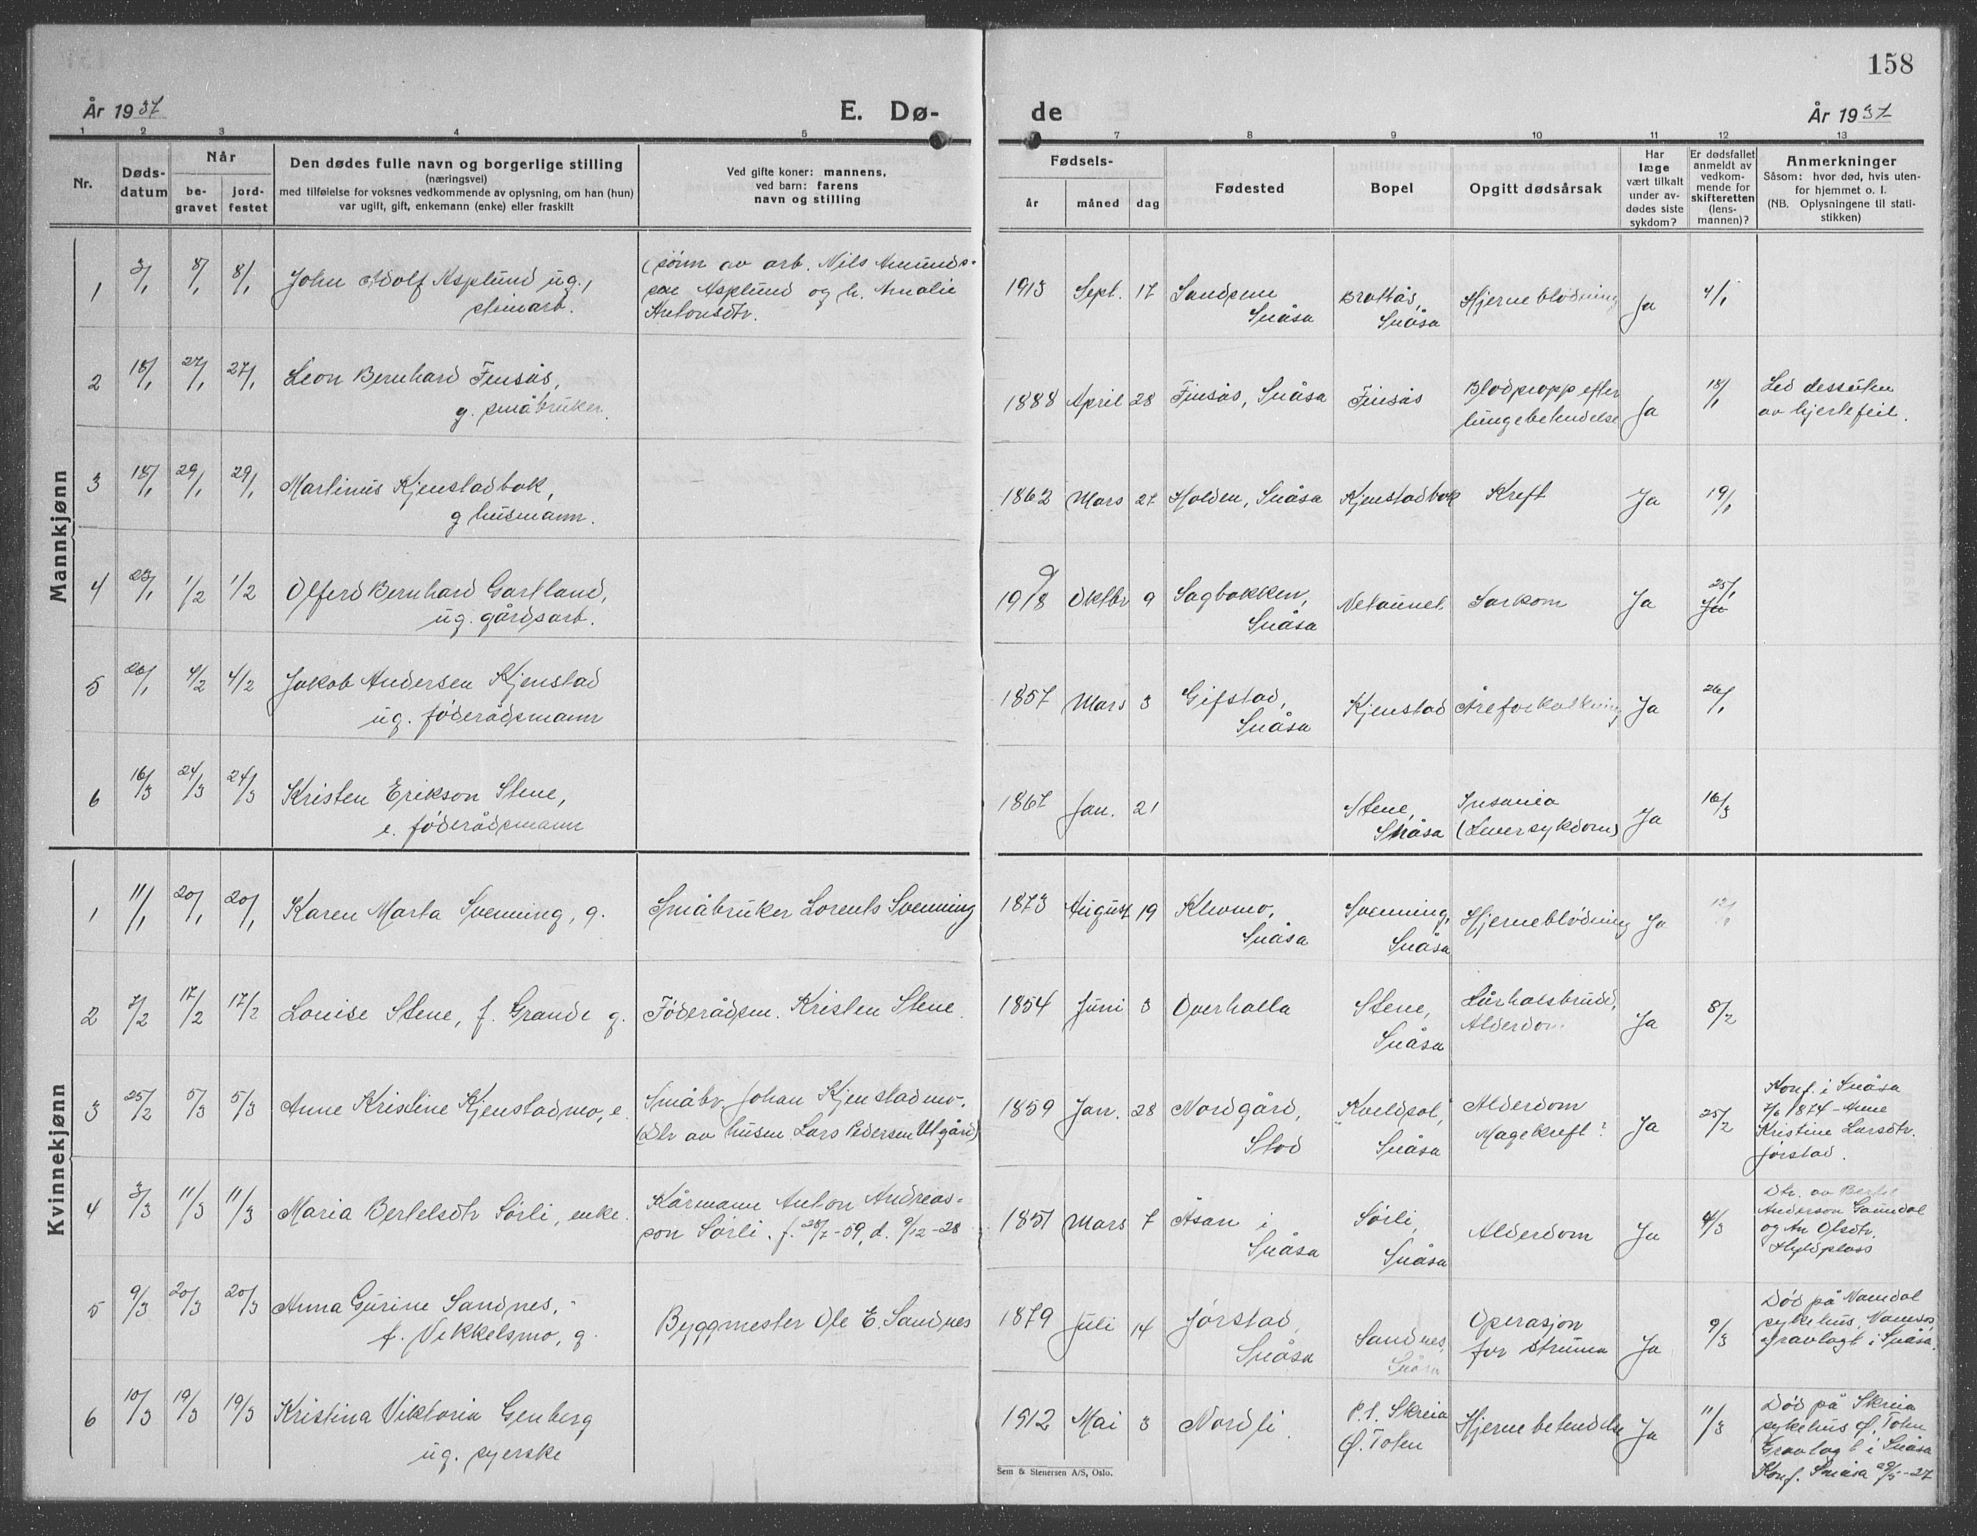 158
År 1937
E. Dø-
de
År 1937
1 2 3 4 5 7 8 9 10 11 12 13
Nr.
Døds-
datum
Når
be-
gravet
jord-
festet
Den dødes fulle navn og borgerlige stilling
(næringsvei)
med tilføielse for voksnes vedkommende av oplysning, om han (hun)
var ugift, gift, enkemann (enke) eller fraskilt
Ved gifte koner: mannens,
ved barn: farens
navn og stilling
Fødsels-
år måned dag
Fødested
Bopel
Opgitt dødsårsak
Har
læge
vært tilkalt
under av-
dødes siste
sykdom?
Er dødsfallet
anmeldt av
vedkom-
mende for
skifteretten
(lens-
mannen)?
Anmerkninger
Såsom: hvor død, hvis uten-
for hjemmet o. l.
(NB. Oplysningene til stati-
stikken)
Mannkjønn
1 3/1 8/1 8/1 John Adolf Asplund ug.,
stenarb.
(sönn av arb. Nils Amunds-
sen Asplund og h. Amalie
Antonsdtr.
1913 Sept. 17 Sandsene
Snåsa
Brattås,
Snåsa
Hjerneblödning Ja 4/1
2 18/1 27/1 27/1 Leon Bernhard Finsås,
g. småbruker.
1888 April 28 Finsås, Snåsa Finsås
Blodpropp efter
lungebetendelse
Ja 18/1
Led dessuten
av hjertefeil.
3 18/1 29/1 29/1 Martinus Kjenstadbak,
g husmann.
1862 Mars 27 Holden, Snåsa Kjenstadbak Kreft Ja 19/1
4 23/1 1/2 1/2 Olferd Bernhard Gartland,
ug. gårdsarb.
1918 9 Oktbr 9 Sagbakken,
Snåsa
Sarkom Ja 25/1
Ja
5 26/1 4/2 4/2 Jakob Andersen Kjenstad
ug. föderådsmann
1857 Mars 3 Gifstad,
Snåsa
Kjenstad Åreforkalkning Ja 26/1
6 16/3 24/3 24/3 Kristen Erikson Stene,
e. föderådsmann
1867 Jan. 21
Stene,
Snåsa
Insania
(Leversykdom)
Ja 16/3
Kvinnekjønn
1 11/1 20/1 20/1 Karen Marta Svenning, g. Småbruker Lorents Svenning
1873 August 19 Klvomo,
Snåsa
Svenning,
Snåsa
Hjerneblödning Ja 12/1
2 7/2 17/2 17/2 Louise Stene, f. Grande g. Föderådsm. Kristen Stene.
1854 Juni 3 Overhalla
Stene,
Snåsa
Lårhalsbrudd,
Alderdom
Ja 8/2
3 25/2 5/3 5/3 Anne Kristine Kjenstadmo, e.
Småbr. Johan Kjenstadmo.
(Dtr av husm Lars Pedersen Utgård)
1859 Jan. 28 Nordgård,
Stod
Kveldsol,
Snåsa
Alderdom
Magekreft?
Ja 25/2
Konf. i Snåsa
7/6 1874 - Anne
Kristine Larsdtr.
Jørstad.
4 3/3 11/3 11/3 Maria Bertelsdtr Sörli, enke.
Kårmann Anton Andreas-
son Sörli. f. 28/7-59, d. 9/12-28
1851 Mars 7 Åsan i
Snåsa
Sörli,
Snåsa
Alderdom Ja 4/3
Dtr. av Bertel
Anderson
og An Olsdtr.
5 9/3 20/3 20/3 Anna Gurine Sandnes,
f. Vikkelsmo, g.
Byggmester Ole E. Sandnes
1879 Juli 14 Jørstad,
Snåsa
Sandnes,
Snåsa
Operasjon
for struma
Ja 9/3
Död på Namdal
sykehus, Namsos,
gravlagt i Snåsa.
6 10/3 19/3 19/3 Kristina Viktoria Genberg
ug. syerske
1912 Mai 3 Nordli.
p.t. Skreia
Ø. Toten
Hjernebetendelse Ja 11/3
Död på Skreia
sykehus Ø. Toten
Gravlagt i Snåsa
Konf. Snåsa 29/5-27
Sem & Stenersen A/S, Oslo.